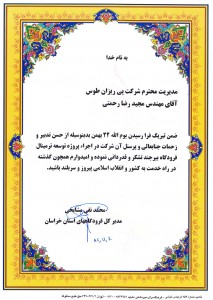 به نام خدا
مدیریت محترم شرکت پی ریزان طوس
آقای مهندس مجید رضا رحمتی
ضمن تبریک فرا رسیدن یوم الله ۲۲ بهمن بدینوسیله از حسن تدبیر و
زحمات جنابعالی و پرسنل آن شرکت در اجراء پروژه توسعه ترمینال
فرودگاه بیرجند تشکر و قدردانی نموده و امیدوارم همچون گذشته
در راه خدمت به کشور و انقلاب اسلامی پیروز و سربلند باشید.
محمد تقی مشایخی
مدیر کل فرودگاههای استان خراسان